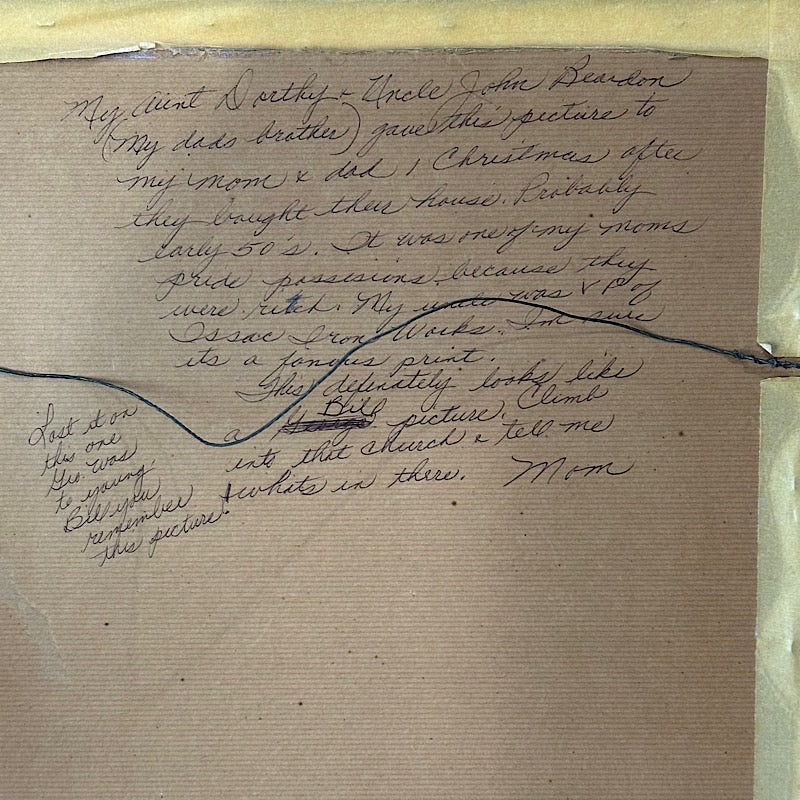 My Aunt Dorthy & Uncle John Beardon
(My dads brother) gave this picture to
my mom & dad 1 Christmas after
they bought their house. Probably
early 50's. It was one of my moms
pride possesions because they
were ritch. My uncle was V P of
Issac Iron Works. Im sure
its a famous print.
This definately looks like
a Bill picture. Climb
into that church & tell me
whats in there. Mom
Lost it on
this one
Geo. was
to young.
Bill you
remember
this picture!